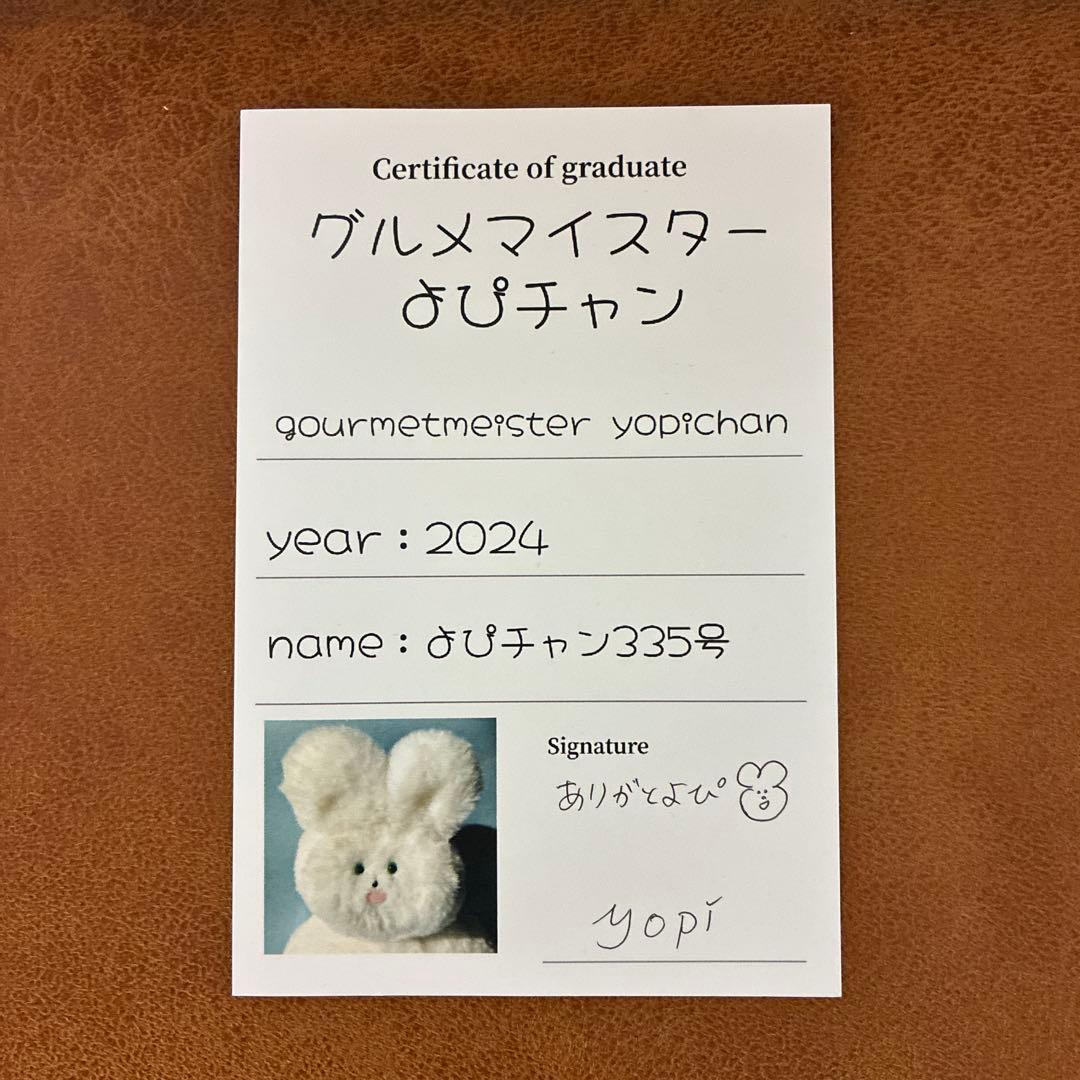 Certificate of graduate
グルメマイスター
よぴチャン
gourmetmeister yopichan
year：2024
name：よぴチャン335号
Signature
ありがとよぴ
yopi